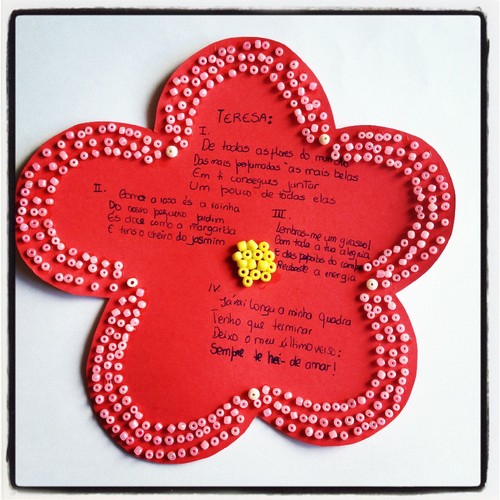 TERESA:
I.
De todas as flores do mundo
Das mais perfumadas às mais belas
Em ti consegues juntar
Um pouco de todas elas
II.
Como a rosa és a rainha
Do nosso pequeno jardim
És doce como a margarida
E tens o cheiro do jasmim
III.
Lembras-me um girassol
Com toda a tua alegria
E das papoilas do campo
a energia
IV.
Já vai longa a minha quadra
Tenho que terminar
Deixo o meu último verso:
Sempre te hei-de amar!